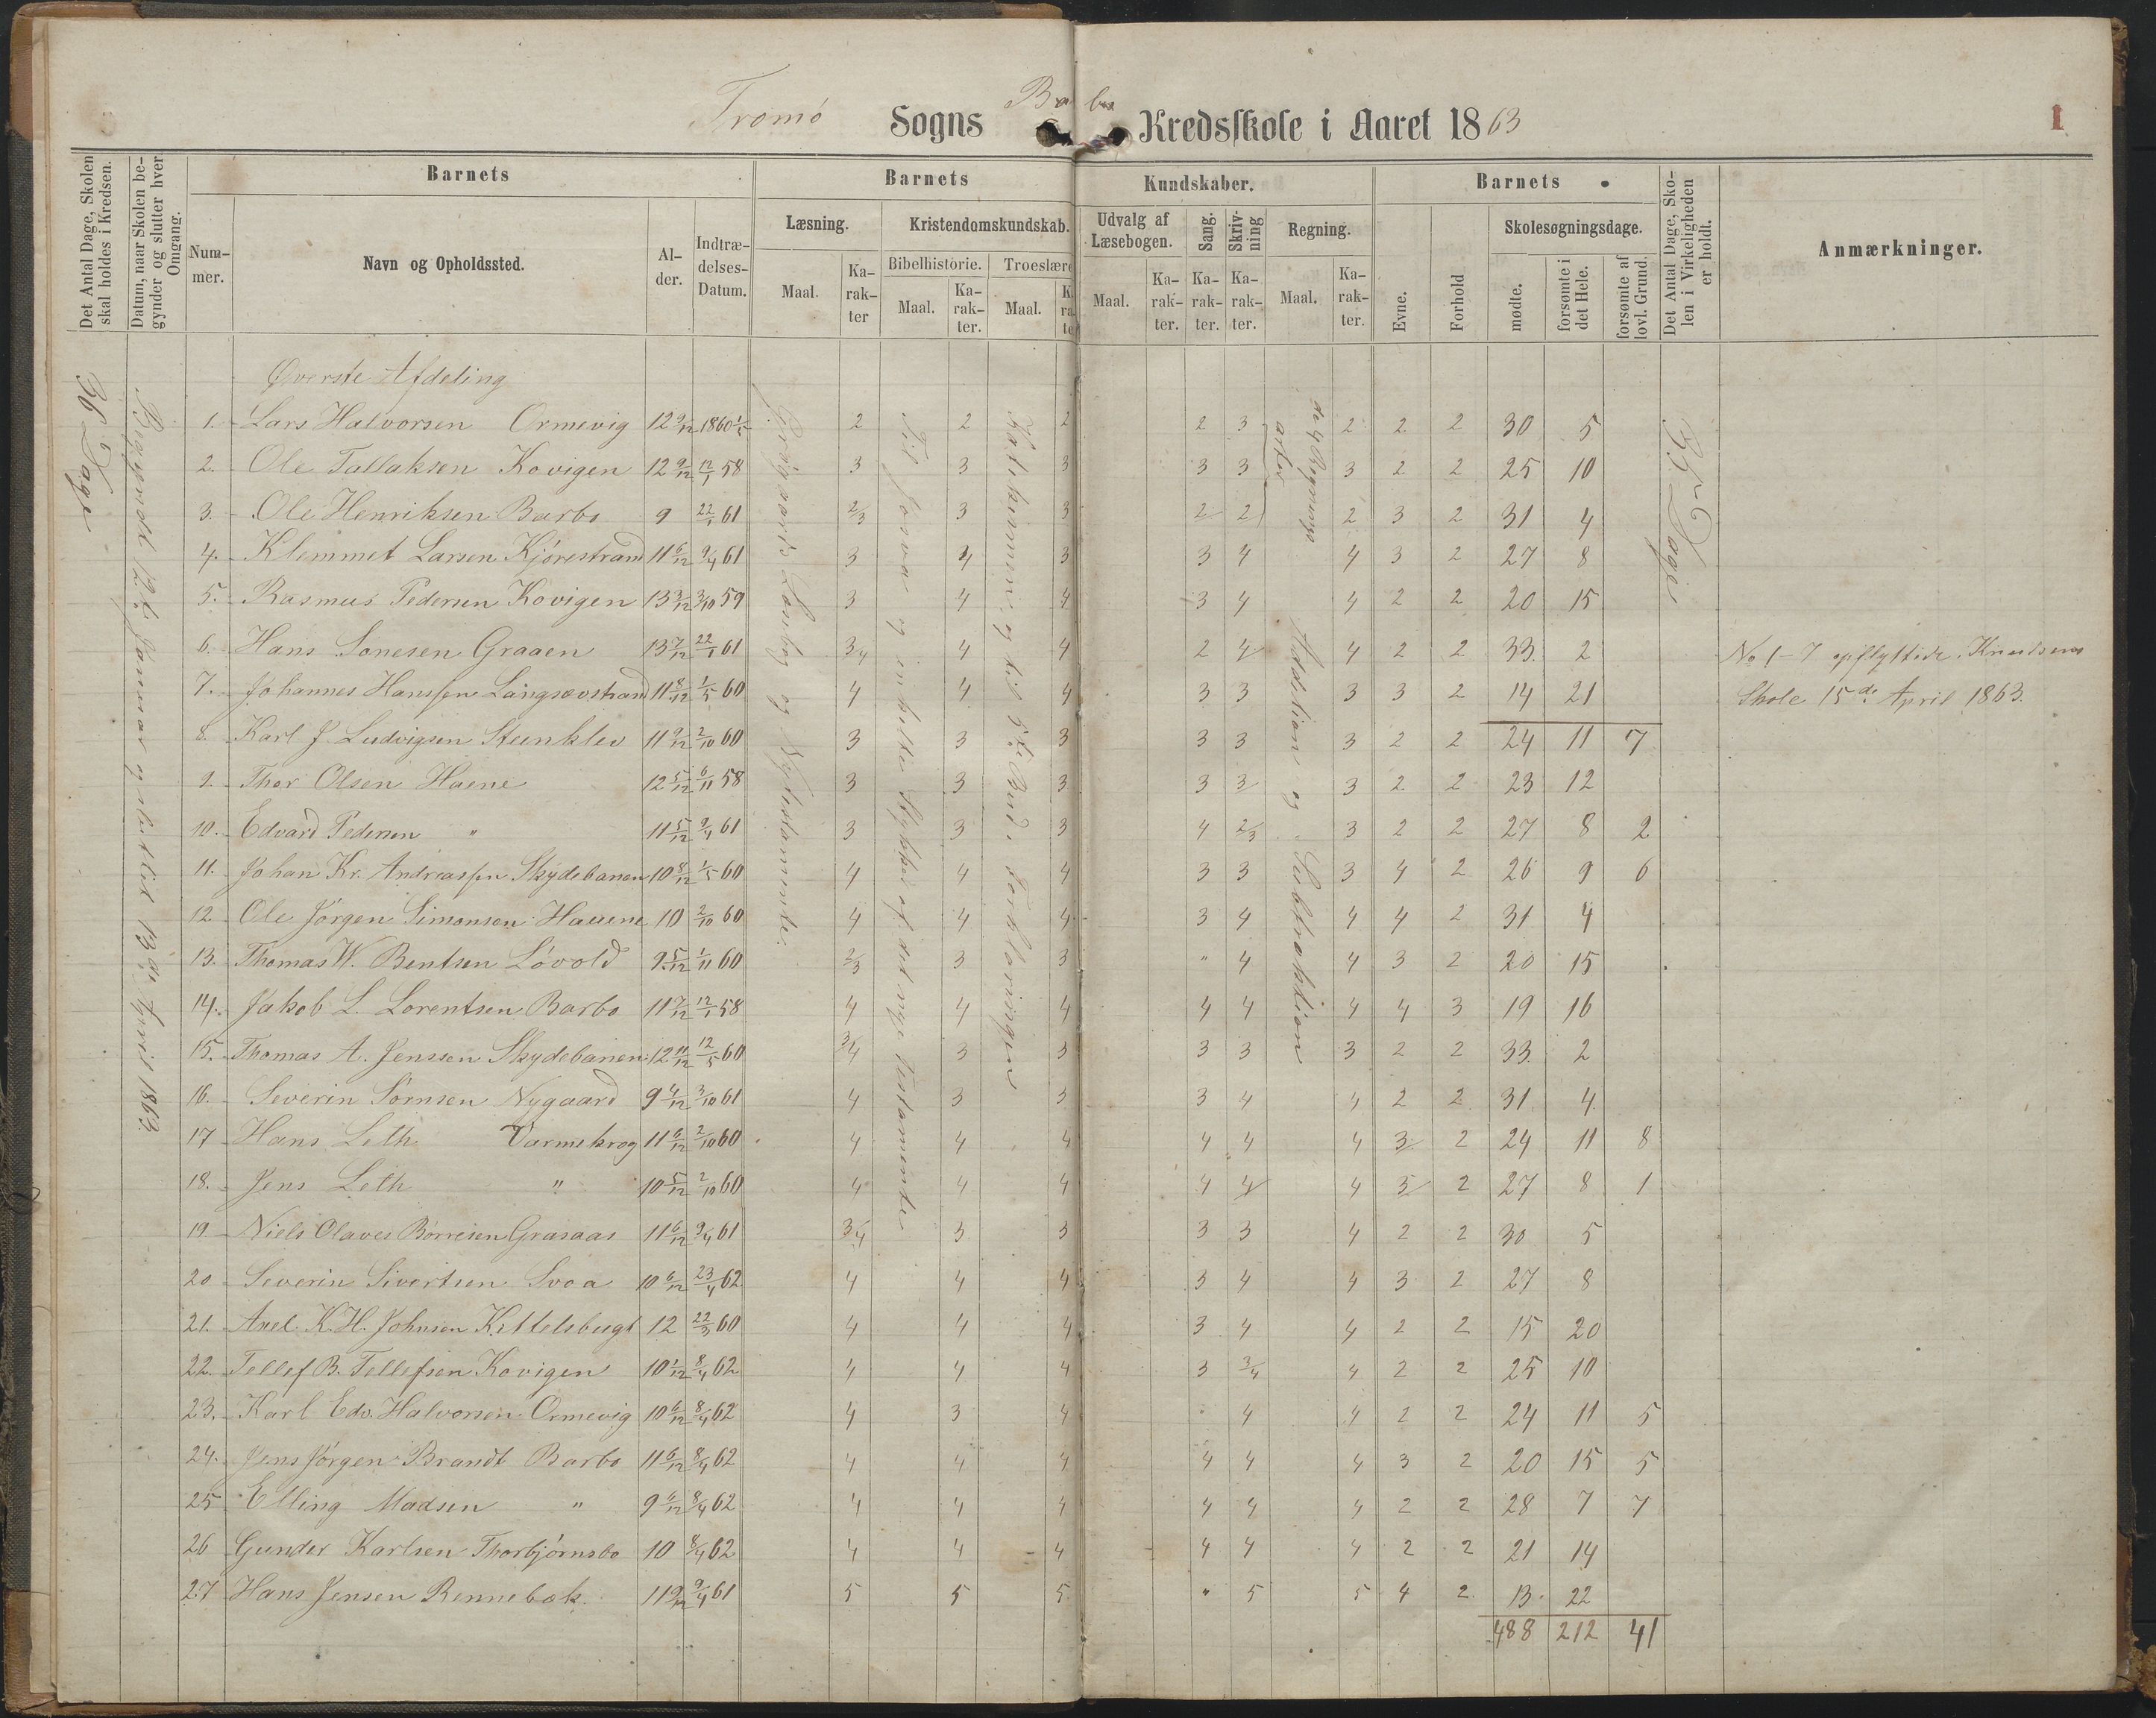 Tromø Sogns Barbo Kredsskole i Aaret 1863
1
Det Antal Dage, Skolen skal holdes i Kredsen.
Datum, naar Skolen begynder og slutter hver Omgang.
Barnets
Nummer.
Navn og Opholdssted.
Alder.
Indtrædelses-Datum.
Barnets Kundskaber.
Læsning.
Maal.
Karakter
Kristendomskundskab.
Bibelhistorie.
Maal.
Karakter.
Troeslære
Maal.
Udvalg af Læsebogen.
Maal.
Karakter.
Sang.
Karakter.
Skrivning
Karakter.
Regning.
Maal.
Karakter.
Barnets
Evne.
Forhold
Skolesøgningsdage.
mødte.
forsømte i det Hele.
forsømte af lovl. Grund.
Det Antal Dage, Skolen i Virkeligheden er holdt.
Anmærkninger.
36 Dage
Begyndt 12te Januar og sluttet 13de April 1863.
Læsebog og Nytestamente.
Til Josva og enkelte Stykker af det nye Testamente
Katekismen og til 5te Bud i Forklaringen
de 4 Regningsarter
Addition og Subtraktion
35 Dage
Øverste Afdeling
1. Lars Halvorsen Ormevig 12 9/12 1860 1/5 2 2 2 2 3 2 2 2 30 5
2. Ole Tallaksen Kovigen 12 9/12 12/1 58 3 3 3 3 3 3 2 2 25 10
3. Ole Henriksen Barbo 9 22/1 61 2/3 3 3 2 2 2 3 2 31 4
4. Klemmet Larsen Kjørestrand 11 6/12 9/4 61 3 4 3 3 4 4 3 2 27 8
5. Rasmus Pedersen Kovigen 13 3/12 3/10 59 3 4 4 3 4 4 2 2 20 15
6. Hans Sonesen Graaen 13 7/12 22/1 61 3/4 4 4 2 4 4 2 2 33 2 No 1-7 opflyttede i Knudsens
7. Johannes Hanssen Langsævstrand 11 8/12 1/5 60 4 4 4 3 3 3 3 2 14 21 Skole 15de April 1863.
8. Karl J. Ludvigsen Steenklev 11 9/12 2/10 60 3 3 3 3 3 3 2 2 24 11 7
9. Thor Olsen Haene 12 5/12 6/11 58 3 3 3 3 3 3 2 2 23 12
10. Edvard Pedersen " 11 5/12 9/4 61 3 3 3 4 2/3 3 2 2 27 8 2
11. Johan Kr. Andreassen Skydebanen 10 8/12 1/5 60 4 4 4 3 3 3 4 2 26 9 6
12 Ole Jørgen Simonsen Hauene 10 2/10 60 4 4 4 3 4 4 4 2 31 4
13. Thomas W. Bentsen Løvold 9 5/12 1/11 60 2/3 3 3 " 4 4 3 2 20 15
14. Jakob L. Lorentsen Barbo 11 7/12 12/1 58 4 4 4 4 4 4 4 3 19 16
15. Thomas A. Jenssen Skydebanen 12 11/12 12/5 60 3/4 3 3 3 3 3 2 2 33 2
16. Severin Sørnsen Nygaard 9 4/12 3/10 61 4 3 3 3 4 4 2 2 31 4
17 Hans Leth Varmekrog 11 6/12 2/10 60 4 4 4 4 4 4 3 2 24 11 8
18. Jens Leth " 10 5/12 2/10 60 4 4 4 4 4 4 3 2 27 8 1
19. Niels Olaves Børresen Grasaas 11 6/12 9/4 61 3/4 3 3 3 3 4 2 2 30 5
20 Severin Sivertsen Svoa 10 6/12 23/4 62 4 4 4 3 4 4 3 2 27 8
21. Axel K. H. Johnsen Kittelsbugt 12 22/3 60 4 4 4 3 4 4 2 2 15 20
22. Tellef B. Tellefsen Kovigen 10 1/12 8/4 62 4 4 4 3 3/4 4 2 2 25 10
23. Karl Edv. Halvorsen Ormevig 10 6/12 8/4 62 4 3 4 4 4 2 2 24 11 5
24. Jens Jørgen Brandt Barbo 11 6/12 8/4 62 4 4 4 4 4 4 3 2 20 15 5
25 Elling Madsen " 9 6/12 8/4 62 4 4 4 4 4 4 2 2 28 7 7
26 Gunder Karlsen Thorbjørnsbo 10 8/4 62 4 4 4 4 4 4 2 2 21 14
27 Hans Jensen Rennebæk 11 9/12 9/4 61 5 5 5 " 5 5 4 2 13 22
488 212 41